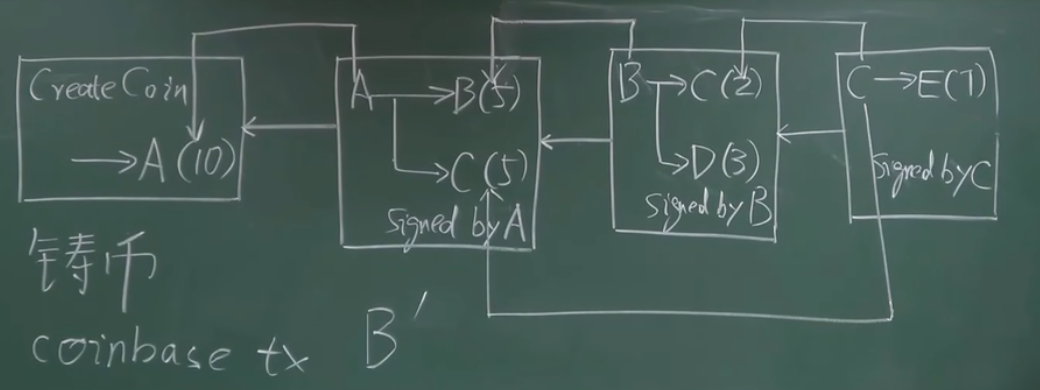 CreateCoin
→A(10)
A→B(5)
→C(5)
Signed by A
B→C(2)
→D(3)
Signed by B
C→E(7)
Signed by C
铸币
coinbase tx
B′